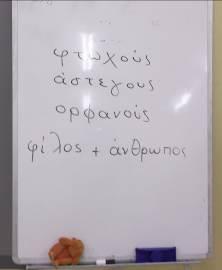 φτωχούς
άστεγους
ορφανούς
φίλος + άνθρωπος